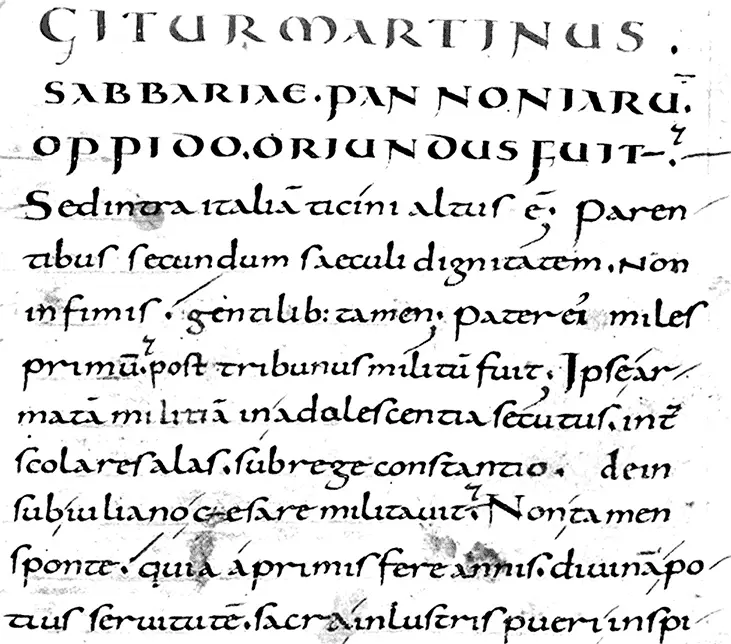 GITUR MARTINUS.
SABBARIAE. PANNONIARŪ.
OPPIDO. ORIUNDUS FUIT.
Sed intra italiā ticini altus ē; Paren
tibus secundum saeculi dignitatem. Non
infimis. gentilib: tamen; Pater ei miles
primū. post tribunus militū fuit; Ipse ar
matā militiā in adolescentia secutus. int̄
scolares alas. sub rege constantio. dein
sub iuliano cesare militavit. Non tamen
sponte. quia a primis fere annis. divinā po
tius servitutē. sacra inlustris pueri inspi